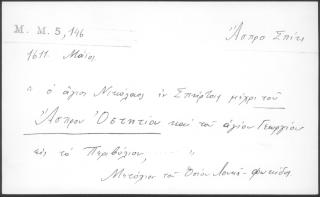 M. M. 5, 146
Ἄσπρο Σπίτι
1611. Μάϊος
" ὁ ἅγιος Νικόλαος ἐν Σπάρταις μέχρι τοῦ
Ἄσπρου Ὀσπητίου καὶ τοῦ ἁγίου Γεωργίου
εἰς τὸ Περιβόλιον, ..... "
Μετόχιον τοῦ Ὁσίου Λουκᾶ - Φωκίδος